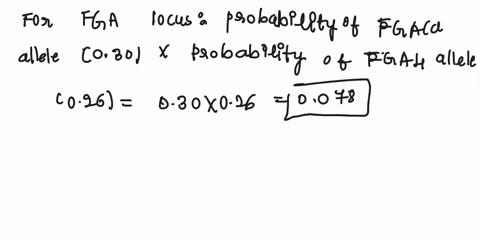 For FGA locus: probability of FGA(a
allele (0.30) x probability of FGA4 allele
(0.26) = 0.30x0.26 = 0.078